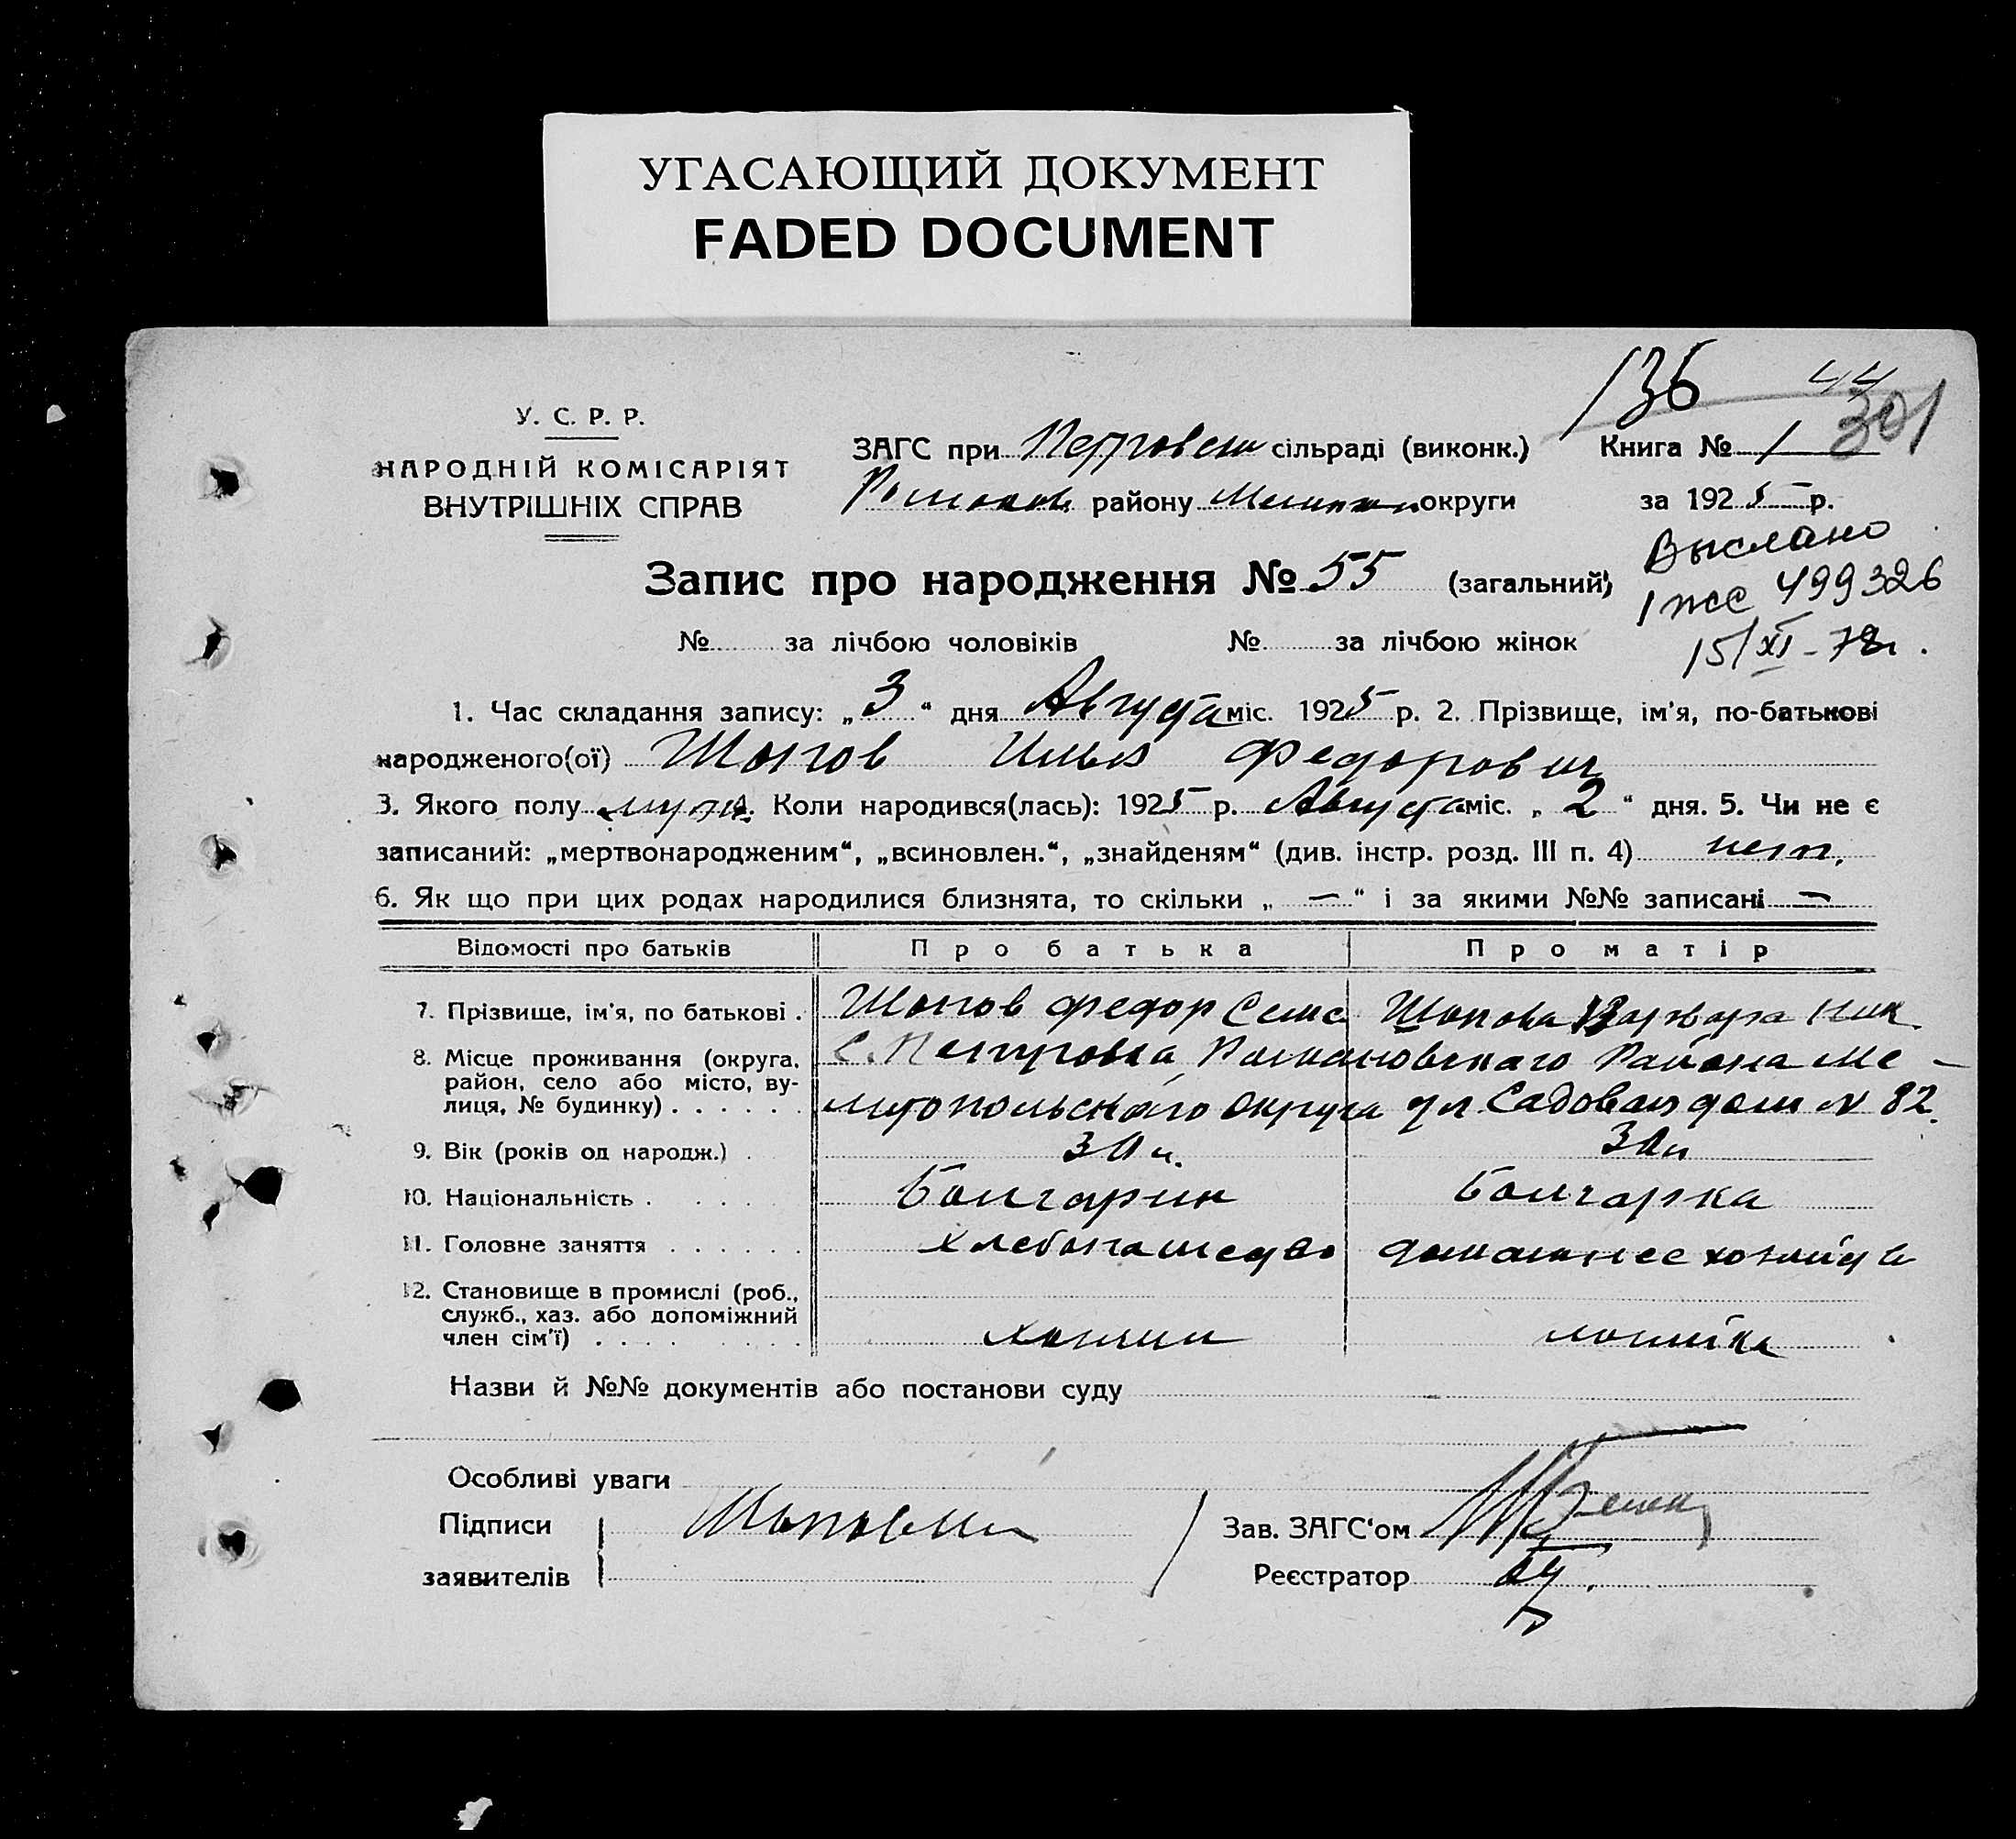 УГАСАЮЩИЙ ДОКУМЕНТ
FADED DOCUMENT
136 44
301
У. С. Р. Р.
НАРОДНІЙ КОМІСАРІЯТ
ВНУТРІШНІХ СПРАВ
ЗАГС при Петровском сільраді (виконк.) Книга № 1
Романов. району округи за 1925 р.
Выслано
499326
15/XI-78г.
Запис про народження № 55 (загальний)
№ за лічбою чоловіків № за лічбою жінок
1. Час складання запису: „3“ дня Августа міс. 1925 р. 2. Прізвище, ім'я, по-батькові
народженого(ої) Шопов Илья Федорович
3. Якого полу муж. 4. Коли народився(лась): 1925 р. Августа міс. „2“ дня. 5. Чи не є
записаний: „мертвонародженим“, „всиновлен.“, „знайденям“ (див. інстр. розд. III п. 4) нет.
6. Як що при цих родах народилися близнята, то скільки „ — “ і за якими №№ записані —
Відомості про батьків Про батька Про матір
7. Прізвище, ім'я, по батькові . Шопов Федор Семе Шопова Варвара Ник.
8. Місце проживання (округа, район, село або місто, вулиця, № будинку) . . . . . . С. Петровка, Романовскаго Района Ме-
литопольскаго Округа ул. Садовая дом № 82.
9. Вік (років од народж.) . 30 л. 30 л
10. Національність . . . . . Болгарин Болгарка
11. Головне заняття . . . . . . хлебопашество домашнее хозяйств
12. Становище в промислі (роб., служб., хаз. або допоміжний член сім'ї) . . . . хозяин
Назви й №№ документів або постанови суду
Особливі уваги
Підписи
заявителів
Зав. ЗАГС'ом
Реєстратор